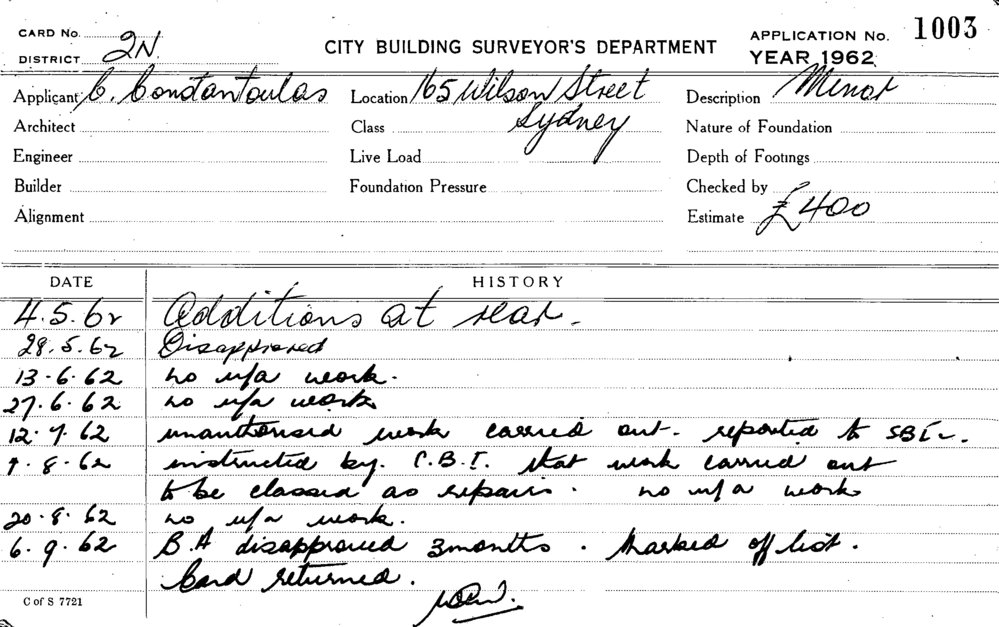 CARD No.
DISTRICT 2N.
CITY BUILDING SURVEYOR'S DEPARTMENT
APPLICATION No. 1003
YEAR 1962
Applicant C. Constantoulas Location 165 Wilson Street Description Minor
Architect Class Sydney Nature of Foundation
Engineer Live Load Depth of Footings
Builder Foundation Pressure Checked by
Alignment Estimate £400
DATE HISTORY
4.5.62 Additions at rear.
28.5.62 Disapproved
13.6.62 no u/a work.
27.6.62 no u/a work
12.7.62 unauthorised work carried out. reported to
7.8.62 instructed by. C.B.I. that work carried out
to be classed as repairs. no u/a work
20.8.62 no u/a work.
6.9.62 B.A disapproved 3months. Marked off list.
Card returned.
C of S 7721